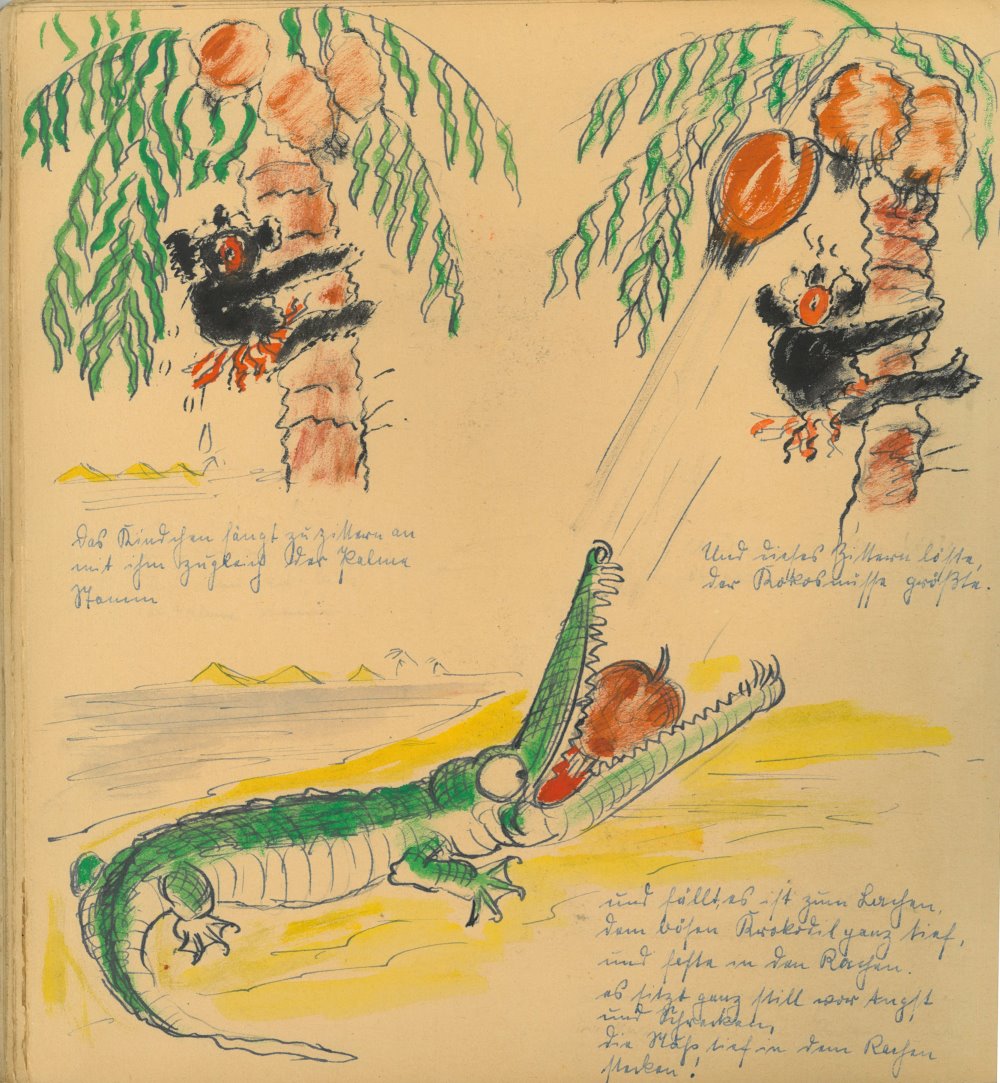 Das Kindchen fängt zu zittern an
mit ihm zugleich der Palme
Stamm
Und dieses Zittern löste,
der Kokosnüsse größte.
und fällt, es ist zum Lachen,
dem bösen Krokodil ganz tief,
und feste in den Rachen.
es sitzt ganz still vor Angst
und Schrecken,
die Nuß tief in dem Rachen
stecken!